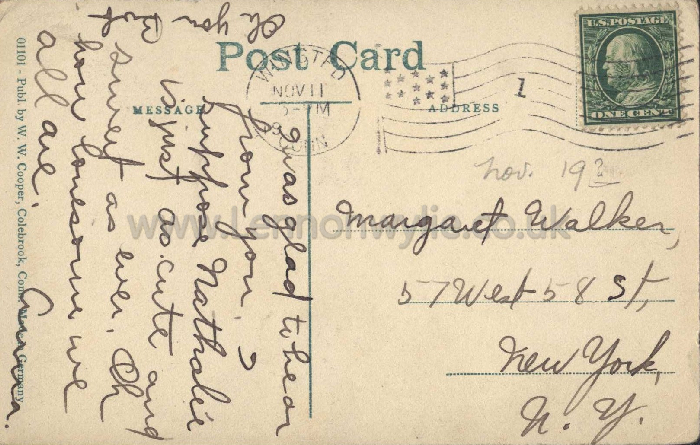 Post Card
MESSAGE
ADDRESS
U.S. POSTAGE
ONE CENT
WINSTED
NOV 11
CONN
1
Nov. 19
Margaret Walker,
57 West 58 St,
New York,
N. Y.
I was glad to hear
from you. I
suppose Nathalie
is just as cute and
sweet as ever. Oh
how lonesome we
all are.
Oh you
01101 Publ. by W. W. Cooper, Colebrook, Conn. Made in Germany.
www.Lennonwylie.co.uk